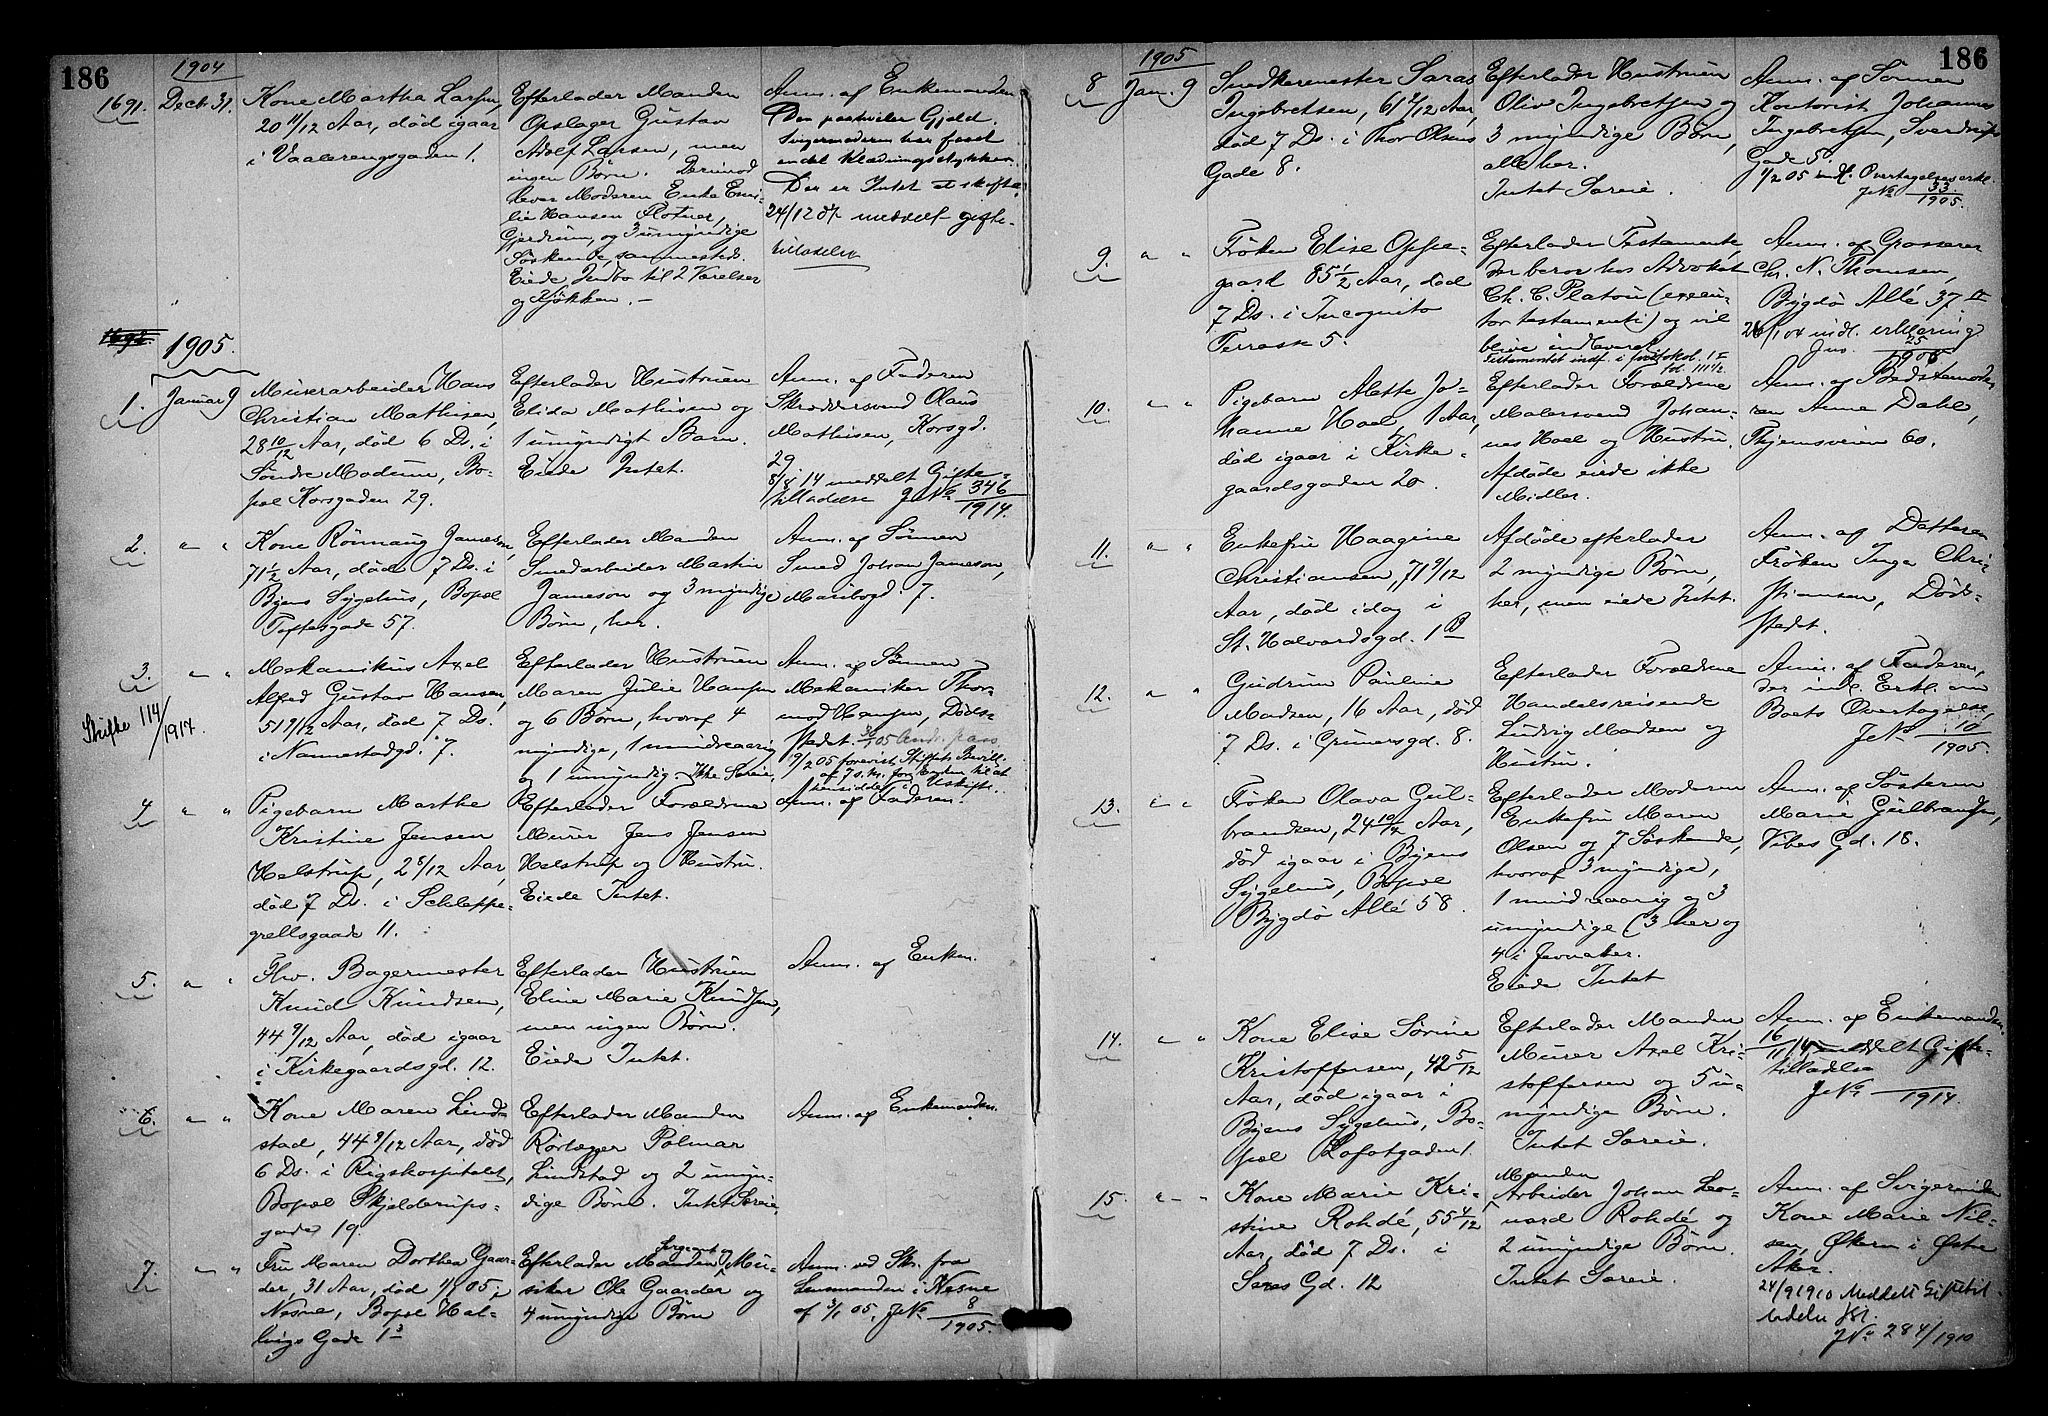 186
1904
1691. Decb. 31.
Kone Martha Larsen,
20 11/12 Aar, död igaar
i Vaalerengsgaden 1.
Efterlader Manden
Opslager Gustav
Adolf Larsen, men
ingen Börn. Derimod
lever Moderen Enke Emi-
lie Hansen Flotner,
Gjerdrum, og 3 umyndige
Söskende sammesteds.
Eiede Indbo til 2 Værelser
og Kjökken. -
Anm. af Enkemanden.
Den paahviler Gjæld.
Svigermoderen har faaet
endel Klædningsstykker.
Der er Intet at skifte.
24/12 meddelt gifte-
tilladelse
1692.
1905.
1. Januar 9
Murerarbeider Hans
Christian Mathisen,
28 10/12 Aar, död 6 Ds. i
Söndre Modum, Bo-
pæl Korsgaden 29.
Efterlader Hustruen
Elida Mathisen og
1 umyndigt Barn.
Eiede Intet.
Anm. af Faderen
Skræddersvend Olaus
Mathisen, Korsgd.
29
8/8 14 meddelt Gifte-
tilladelse JNo 346/1914.
2. " "
Kone Rönnaug Jameson,
71 1/2 Aar, död 7 Ds. i
Byens Sygehus, Bopæl
Toftesgade 57.
Efterlader Manden
Smedarbeider Martin
Jameson og 3 myndige
Börn, her.
Anm. af Sönnen
Smed Johan Jameson,
Maribogd. 7.
3. " "
Skifte 114/1917.
Mekanikus Axel
Alfred Gustav Hansen,
51 9/12 Aar, död 7 Ds.
i Nannestadgd. 7.
Efterlader Hustruen
Maren Julie Hansen
og 6 Börn, hvoraf 4
myndige, 1 mindreaarig
og 1 umyndig. Ikke Særeie.
Anm. af Sönnen
Mekaniker Thor-
mod Hansen, Döds-
stedet.
9/2 05 forevist Stiftets Bevill.
af 7 s. M. for Enken til at
hensidde i Uskifte.
4. " "
Pigebarn Marthe
Kristine Jensen
Helstrup, 2 8/12 Aar,
död 7 Ds. i Schleppe-
grellsgade 11.
Efterlader Forældrene
Murer Jens Jensen
Helstrup og Hustru.
Eiede Intet.
Anm. af Faderen.
5. " "
Fhv. Bagermester
Knud Knudsen,
44 9/12 Aar, död igaar
i Kirkegaardsgd. 12.
Efterlader Hustruen
Eline Marie Knudsen,
men ingen Börn.
Eiede Intet.
Anm. af Enken.
6. " "
Kone Maren Lind-
stad, 44 9/12 Aar, död
6 Ds. i Rigshospitalet,
Bopæl Skjelderups-
gade 19.
Efterlader Manden
Rörlægger Polmar
Lindstad og 2 umyn-
dige Börn. Intet Særeie.
Anm. af Enkemanden.
7. " "
Fru Maren Dorthea Gaar-
der, 31 Aar, död 1/1 05, i
Nesne, Bopæl Hal-
lings Gade 1 3
Efterlader Manden Sergeant og Mu-
siker Ole Gaarder og
4 umyndige Börn
Anm. ved Skr. fra
Lensmanden i Nesne
af 3/1 05, JNo 8/1905.
186
1905
8 Jan. 9
Snedkermester Saras
Ingebretsen, 61 7/12 Aar,
död 7 Ds. i Thor Olsens
Gade 8.
Efterlader Hustruen
Oliv Ingebretsen og
3 myndige Börn,
alle her.
Intet Særeie.
Anm. af Sönnen
Kontorist Johannes
Ingebretsen, Sverdrups
Gade 5.
1/2 05 indl. Overtagelseserkl.
JNo 33/1905.
9. " "
Fröken Elise Oppe-
gaard 85 1/2 Aar, död
7 Ds. i Incognito
Terrasse 5.
Efterlader Testamente,
der beror hos Advokat
Ch. C. Platou (execu-
tor testamenti) og vil
blive indleveret
Testamentet indf. i protokol. 1
fol. 111 1/2
Anm. af Grosserer
Chr. N. Thomsen,
Bygdö Allé 37 II
indl. erklæring
Jno. 25/1905
10. " "
Pigebarn Alette Jo-
hanne Hoel, 1 Aar,
död igaar i Kirke-
gaardsgaden 20.
Efterlader Forældrene
Malersvend Johan-
nes Hoel og Hustru.
Afdöde eiede ikke
Midler.
Anm. af Bedstemode-
ren Anne Dahl,
Thjemsveien 60.
11. " "
Enkefru Haagine
Christiansen, 71 9/12
Aar, död idag i
St. Halvardsgd. 1 B
Afdöde efterlader
2 myndige Börn,
her, men eiede Intet.
Anm. af Datteren
Fröken Inga Chri-
stiansen, Döds-
stedet.
12. " "
Gudrun Pauline
Madsen, 16 Aar, död
7 Ds. i Grünersgd. 8.
Efterlader Forældrene
Handelsreisende
Ludvig Madsen og
Hustru.
Anm. af Faderen,
der indl. Erkl. om
Boets Overtagelse,
JNo 10/1905.
13. " "
Fröken Olava Gul-
brandsen, 24 10/12 Aar,
död igaar i Byens
Sygehus, Bopæl
Bygdö Allé 58.
Efterlader Moderen
Enkefru Maren
Olsen og 7 Söskende,
hvoraf 3 myndige,
1 mindreaarig og 3
umyndige (3 her og
4 i Jevnaker.
Eiede Intet
Anm. af Södsteren
Marie Gulbrandsen,
Vibes Gd. 18.
14. " "
Kone Elise Sörine
Kristoffersen, 42 5/12
Aar, död igaar i
Byens Sygehus, Bo-
pæl Lofotgaden 1.
Efterlader Manden
Murer Axel Kri-
stoffersen og 5 u-
myndige Börn.
Intet Særeie.
Anm. af Enkemanden.
16/11 14 meddelt Gifte-
tilladelse
JNo /1914.
15. " "
Kone Marie Kri-
stine Rohdé, 55 4/12
Aar, död 7 Ds. i
Saras Gd. 12
Efterlader Manden
Arbeider Johan Leo-
nard Rohdé og
2 umyndige Börn.
Intet Særeie.
Anm. af Svigerinden
Kone Marie Nil-
sen, Ökern i Östre
Aker.
24/9 1910 Meddelt Giftetil-
ladelse
JNo 284/1910